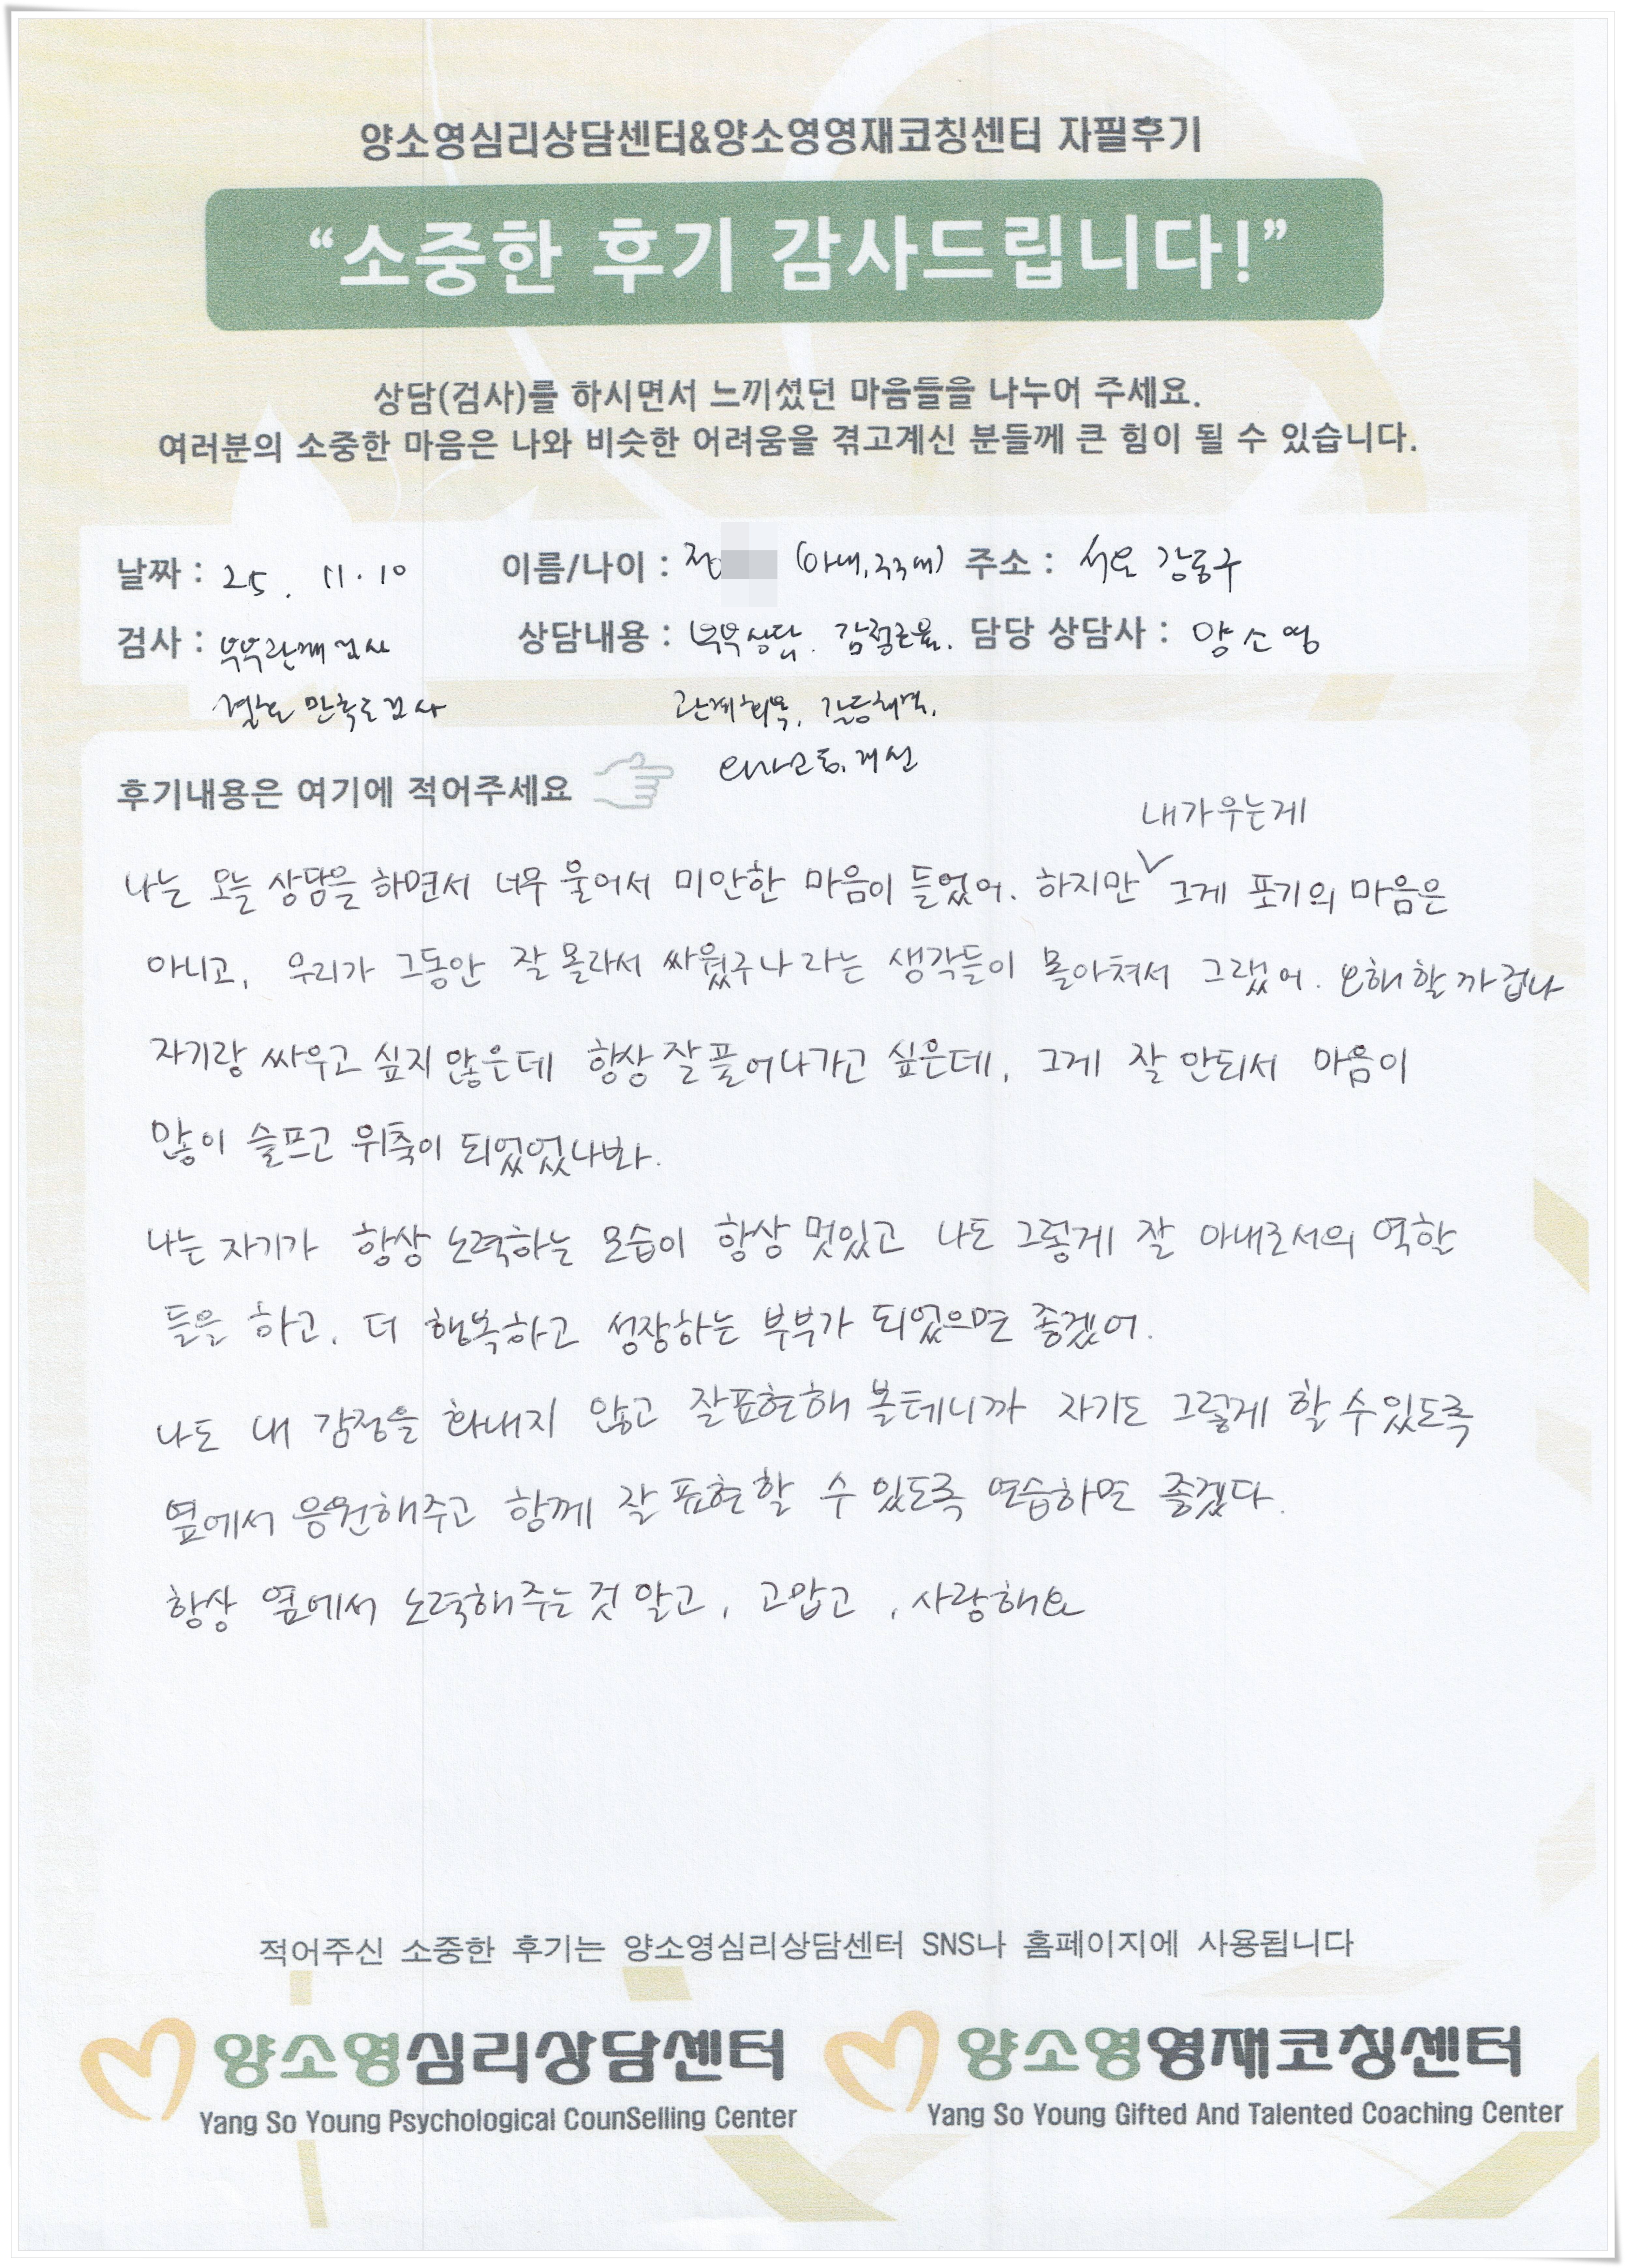 양소영심리상담센터&양소영영재코칭센터 자필후기
“소중한 후기 감사드립니다!”
상담(검사)를 하시면서 느끼셨던 마음들을 나누어 주세요.
여러분의 소중한 마음은 나와 비슷한 어려움을 겪고계신 분들께 큰 힘이 될 수 있습니다.
날짜 : 25. 11. 10 이름/나이 : 정 (아내, 30대) 주소 : 서울 강동구
검사 : 부부관계검사 상담내용 : 부부상담. 감정조율. 담당 상담사 : 양소영
결혼만족도검사 관계회복, 갈등해결,
의사소통, 개선
후기내용은 여기에 적어주세요
내가 우는게
나는 오늘 상담을 하면서 너무 울어서 미안한 마음이 들었어. 하지만 그게 포기의 마음은
아니고, 우리가 그동안 잘 몰라서 싸웠구나 라는 생각들이 몰아쳐서 그랬어. 오해할까 겁나
자기랑 싸우고 싶지 않은데 항상 잘 풀어나가고 싶은데, 그게 잘 안되서 마음이
많이 슬프고 위축이 되었었나봐.
나는 자기가 항상 노력하는 모습이 항상 멋있고 나도 그렇게 잘 아내로서의 역할
들을 하고, 더 행복하고 성장하는 부부가 되었으면 좋겠어.
나도 내 감정을 화내지 않고 잘표현해 볼테니까 자기도 그렇게 할 수 있도록
옆에서 응원해주고 함께 잘 표현할 수 있도록 연습하면 좋겠다.
항상 옆에서 노력해주는 것 알고, 고맙고, 사랑해요
적어주신 소중한 후기는 양소영심리상담센터 SNS나 홈페이지에 사용됩니다
양소영심리상담센터 양소영영재코칭센터
Yang So Young Psychological CounSelling Center Yang So Young Gifted And Talented Coaching Center